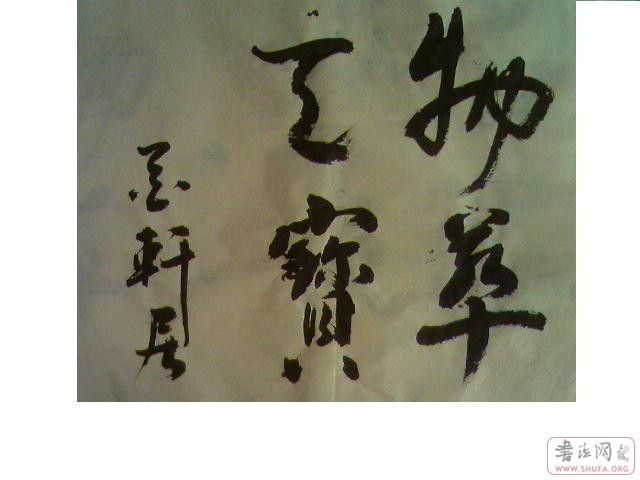 物華
天寶
軒居
書法网
WWW.SHUFA.ORG